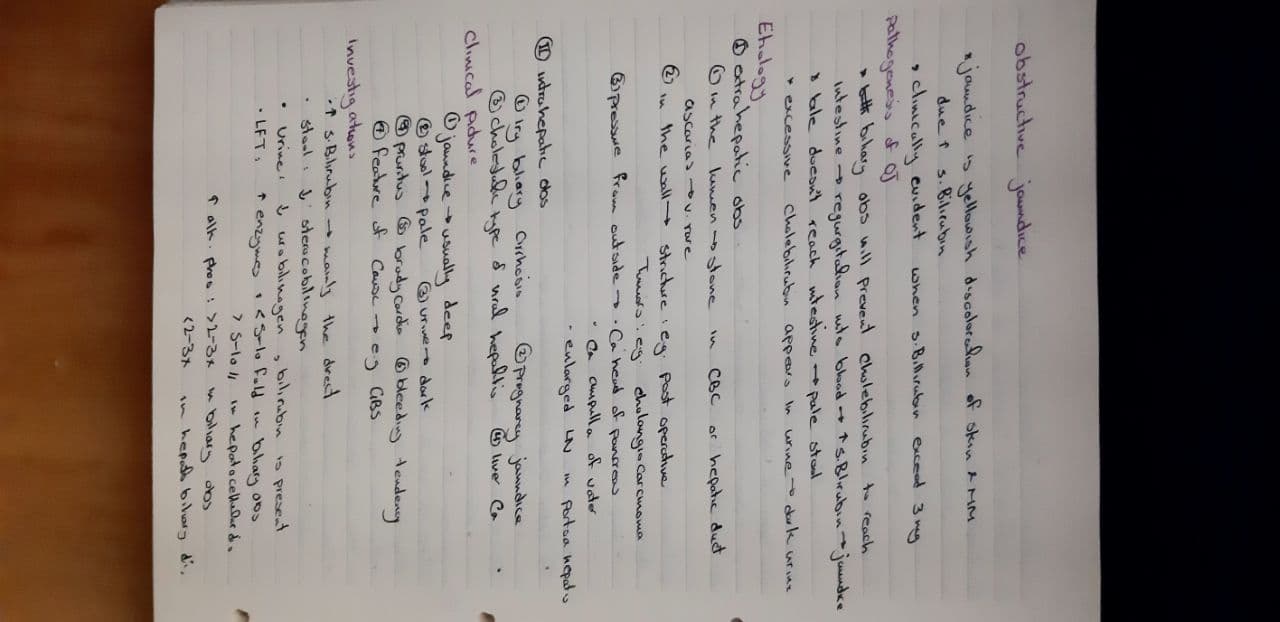 obstructive jaundice
* jaundice is yellowish discoloration of skin & MM
due ↑ s.Bilirubin
* clinically evident when s.Bilirubin exceed 3 mg
pathogenesis of OJ
* biliary obs will prevent cholebilirubin to reach
intestine → regurgitation into blood → ↑ s.Bilirubin → jaundice
* bile doesn't reach intestine → pale stool
* excessive cholebilirubin appears in urine → dark urine
Etiology
① extrahepatic obs.
① in the lumen → stone in CBC or hepatic duct
ascarias → v. rare
② in the wall → stricture: eg. post operative
Tumors: eg. cholangiocarcinoma
③ pressure from outside → • Ca head of pancreas
• Ca ampulla of vater
• enlarged LN in portoa hepatis
Ⅱ intrahepatic obs
① 1ry biliary cirrhosis ② pregnancy jaundice
③ cholestatic type of viral hepatitis ④ liver Ca
Clinical picture
① jaundice → usually deep
② stool → pale ③ urine → dark
④ pruritus ⑤ bradycardia ⑥ bleeding tendency
⑦ feature of cause → eg GBS
Investigations
• ↑ s.Bilirubin → mainly the direct
• stool: ↓ stercobilinogen
• urine: ↓ urobilinogen, bilirubin is present
• LFT: ↑ enzymes: < 5-10 fold in biliary obs
> 5-10 // in hepatocellular d.
↑ alk. phos: >2-3x in biliary obs
<2-3x in hepato biliary di.